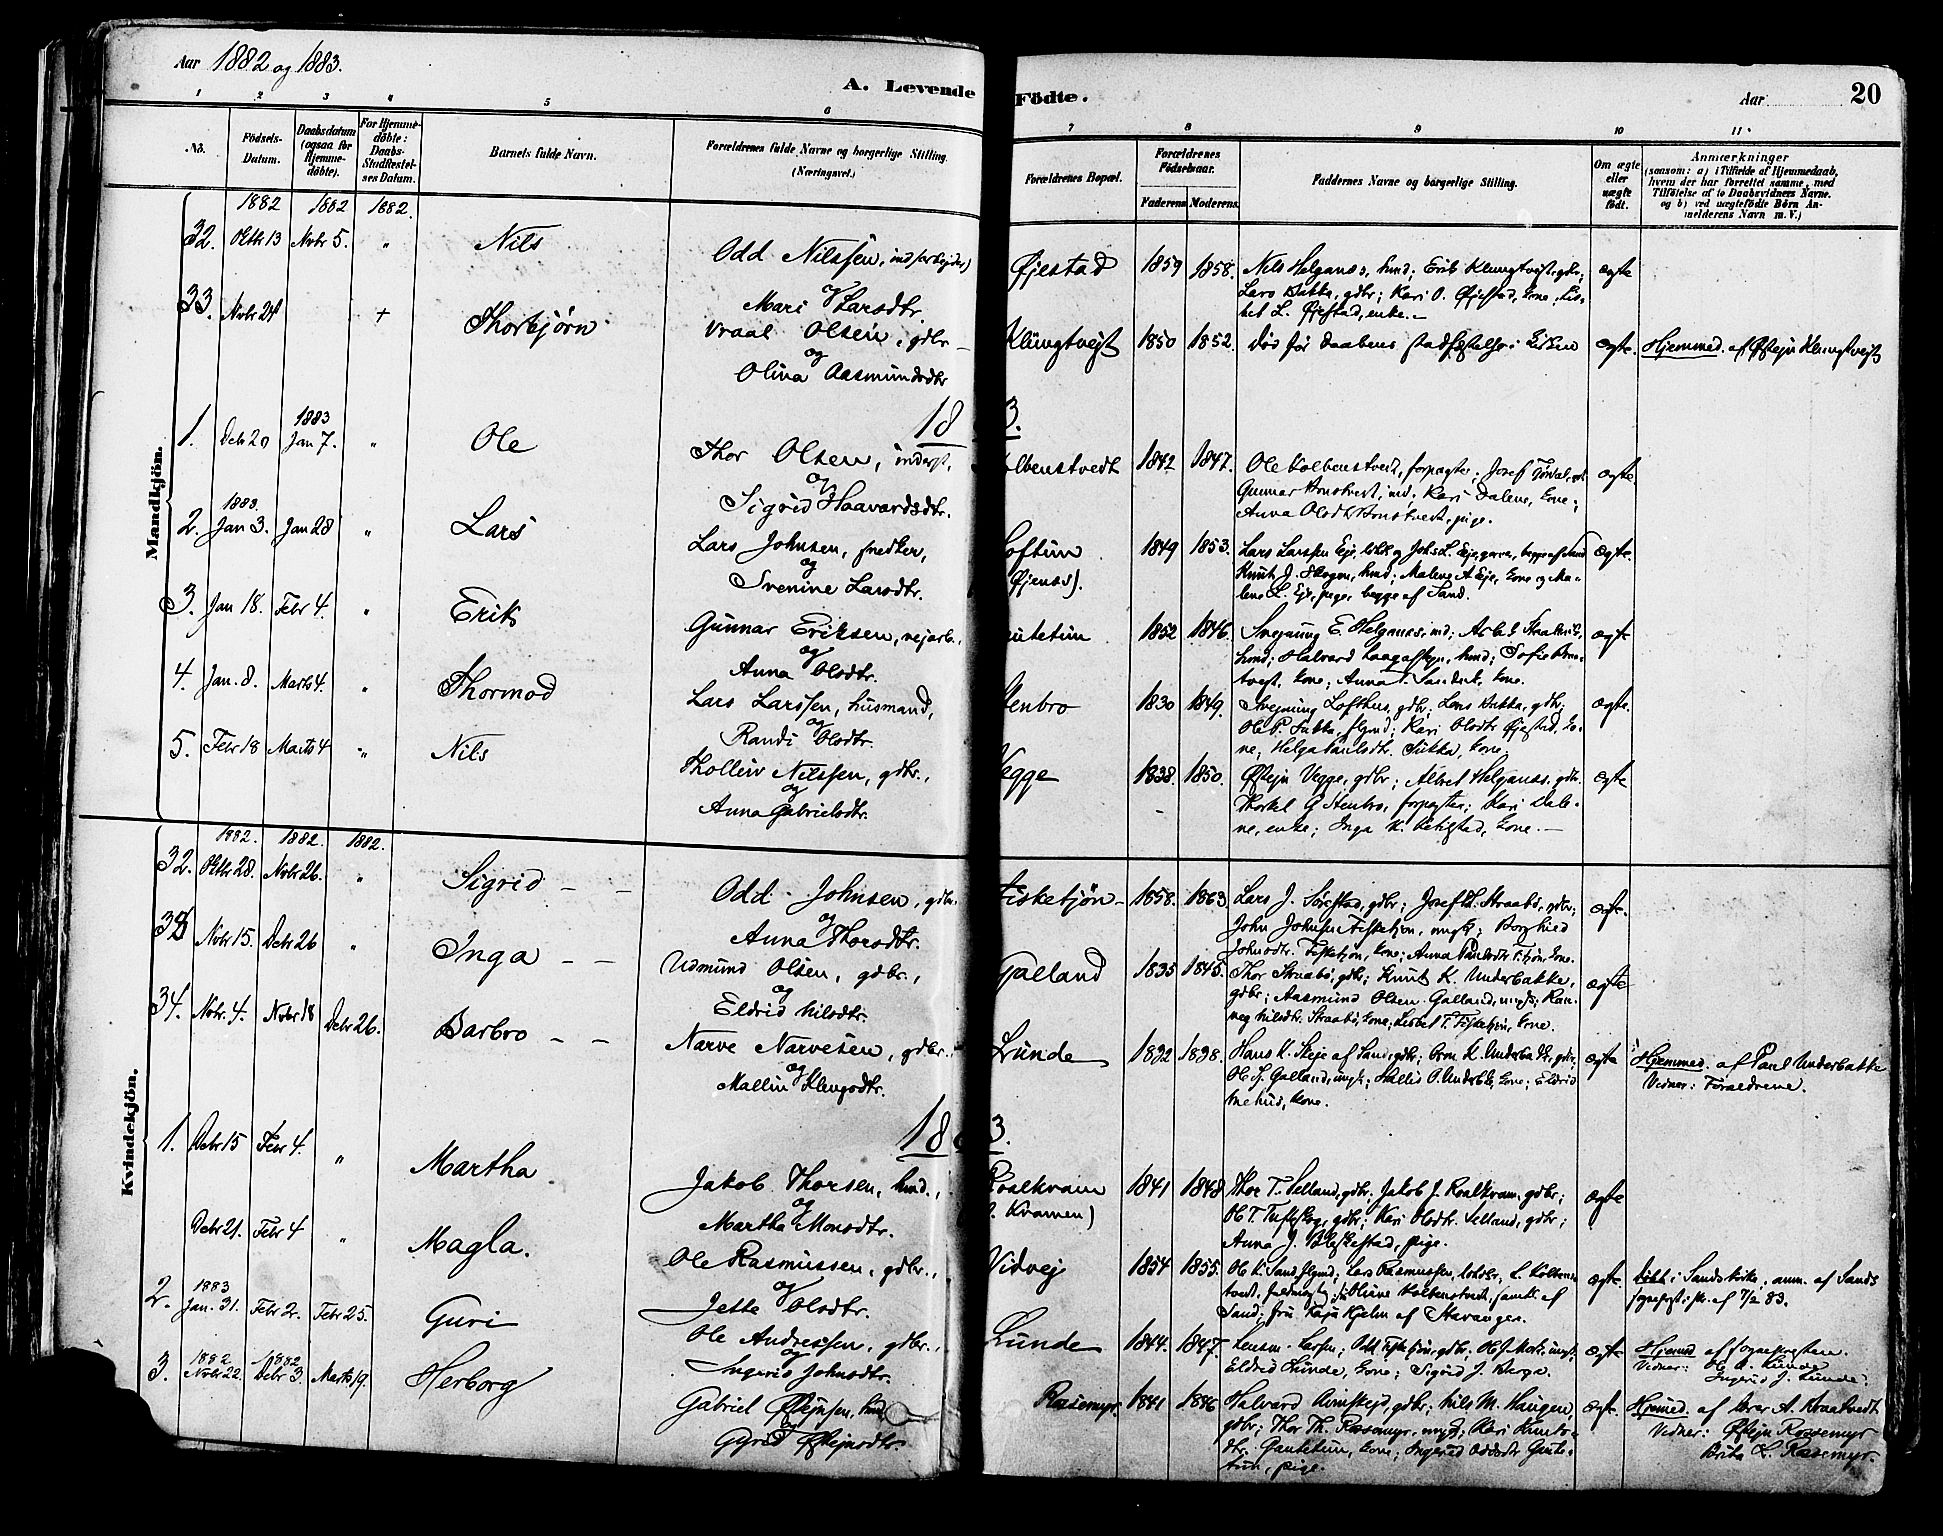 Aar 1882 og 1883.
A. Levende Födte.
Aar 20
1 2 3 4 5 6 7 8 9 10 11
No.
Födsels-
Datum.
Daabsdatum
(ogsaa for
Hjemme-
döbte).
For Hjemme-
döbte:
Daabs-
Stadfæstel-
ses Datum.
Barnets fulde Navn.
Forældrenes fulde Navne og borgerlige Stilling.
(Næringsvei.)
Forældrenes Bopæl.
Forældrenes
Födselsaar.
Faderens Moderens
Faddernes Navne og borgerlige Stilling.
Om ægte
eller
uægte
födt.
Anmærkninger
(saasom: a) i Tilfælde af Hjemmedaab,
hvem der har forrettet samme, med
Tilföielse af to Daabsvidners Navne.
og b) ved uægtefödte Börn An-
melderens Navn m. V.)
Mandkjön.
1882 1882 1882.
32. Oktbr 13 Novbr 5. " Nils
Odd Nilssen,
og
Mari Larsdtr.
Øjestad 1859 1858. Nils Helganes, hmd; Erik Klungtvejt, gdbr;
Lars Bakka, gdbr; Kari O. Øjestad, kone;
L. Øjestad, enke.
ægte
33. Novbr 24 + Thorbjørn
Vraal Olsen, gdbr
og
Olina Aasmundsdtr
Klungtvejt 1850 1852. Død før daabens stadfæstelse i kirken ægte. Hjemmed. af Østejn Klungtvejt
1883.
1883
1. Debr 20 Jan 7. " Ole
Thor Olsen, inderst,
og
Sigrid Haavardsdtr.
Kolbenstvedt 1842 1847. Ole Kolbenstvedt, forpagter; Josef
Gunnar ind; Kari Dalene, kone;
Anna Olsdtr pige.
ægte.
1883.
2. Jan 3. Jan 28 " Lars
Lars Johnsen, snedker,
og
Svenine Larsdtr.
Loftum
(Øjenæs).
1849 1853. Lars Larssen Eje, og Johs L. Eje,
Knut J. Skogen, hmd; Malene A Eje, kone og Ma-
lene L. Eje, pige, begge af Sand.
ægte.
3. Jan 18. Febr 4. " Erik
Gunnar Eriksen, vejarb.,
og
Anna Olsdtr.
1852 1846. Svejnung E. Helganes, ind;
hmd; Halvard hmd; Sofie
kone; Anna kone.
ægte
4. Jan. 8. Marts 4. " Thormod
Lars Larssen, husmand,
og
Randi Olsdtr.
Stenbro 1830 1849. Svejnung Lofthus, gdbr; Lars Bakka, gdbr;
Ole P. Kari Olsdtr Øjestad, ko-
ne; Helga Paulsdtr. kone.
ægte.
5. Febr 18 Marts 4 " Nils
Thollew Nilssen, gdbr.,
og
Anna Gabrielsdtr.
Vegge 1838. 1850. Østejn Vegge, gdbr; Albret Helganes, gdbr.
Thorkel G Stenbro, forpagter; Kari Dale-
ne, enke; Inga K. kone.
ægte
Kvindekjön.
1882. 1882. 1882.
32. Oktbr 28. Novbr 26. " Sigrid
Odd Johnsen, gdbr.
og
Anna Thorsdtr.
Fisketjøn 1858. 1863 Lars J. gdbr; Josef Straabø, gdbr;
John Johnsen Fisketjøn, ungk; Borghild
Johnsdtr. Fisketjøn, kone; Anna kone.
ægte.
33 Novbr 15. Debr 26 " Inga
Udmund Olsen, gdbr.,
og
Eldrid Nilsdtr.
Galland 1835 1845. Thor Straabø, gdbr; Knut K. Underbakke,
gdbr; Aasmund Olsen Galland, ungk; Ran-
veg Nilsdtr. Straabø, kone; Lisbet T. Fisketjøn, kone.
ægte
34. Novbr. 4. Novbr 18 Debr 26. Barbro
Narve Narvesen, gdbr.,
og
Mallin Klengsdtr.
Lunde 1832 1838. Hans K. Skeje af Sand, gdbr; Orm K. Underbakke, gdbr;
Ole J. Galland, ungk; kone; Eldrid
kone.
ægte Hjemmed. af Paul Underbakke
Vidner: Forældrene.
1883.
1. Debr 15 Febr 4. " Martha
Jakob Thorsen, hmd.,
og
Martha Monsdtr.
Roalkvam
(Kvamen)
1841 1848 Thor T. Selland, gdbr; Jakob J. Roalkvam, gdbr;
Ole T. Tufteskog, gdbr; Kari Olsdtr. Selland, gdbr;
Anna J. Bleskestad, pige.
ægte
Debr 21. Febr 4 " Magla.
Ole Rasmussen, gdbr.,
og
Jette Olsdtr.
Vidvej 1854 1855. Ole K. Sand, Lars Rasmussen,
Oliane Kolbenstvedt, samtl. af
Sand; fru Kaja Hjelm af Stavanger.
ægte. Døbt i Sands kirke, anm. af Sands
sognepræst i skr. af 7/2 83.
1883
2. Jan. 31. Febr 2. Febr 25. Guri
Ole Andreassen, gdbr.,
og
Ingerid Johnsdtr.
Lunde 1844. 1847. Larsen; Odd Fisketjøn, gdbr.
Eldrid Lunde, kone; Sigrid J. Berge.
ægte Hjemmed af sognepresten.
Vidner: O. A. Lunde
Ingerid J. Lunde.
1882 1882
3. Novbr 22. Debr 3. Marts 19. Herborg
Gabriel Østejnsen, hmd
og
Gyrid Østejnsdtr.
Rasemyr. 1841 1846 Halvard gdbr; Nils M. Haugen,
gdbr; Thor Th. Rasemyr, ungk; Kari Knuts-
dtr. Gautetun, kone; Ingerid Oddsdtr Gaute-
tun, pige.
ægte. Hjemmed. af Iver A. Braatvedt
Vidner: Østejn Rasemyr
Brita L. Rasemyr.